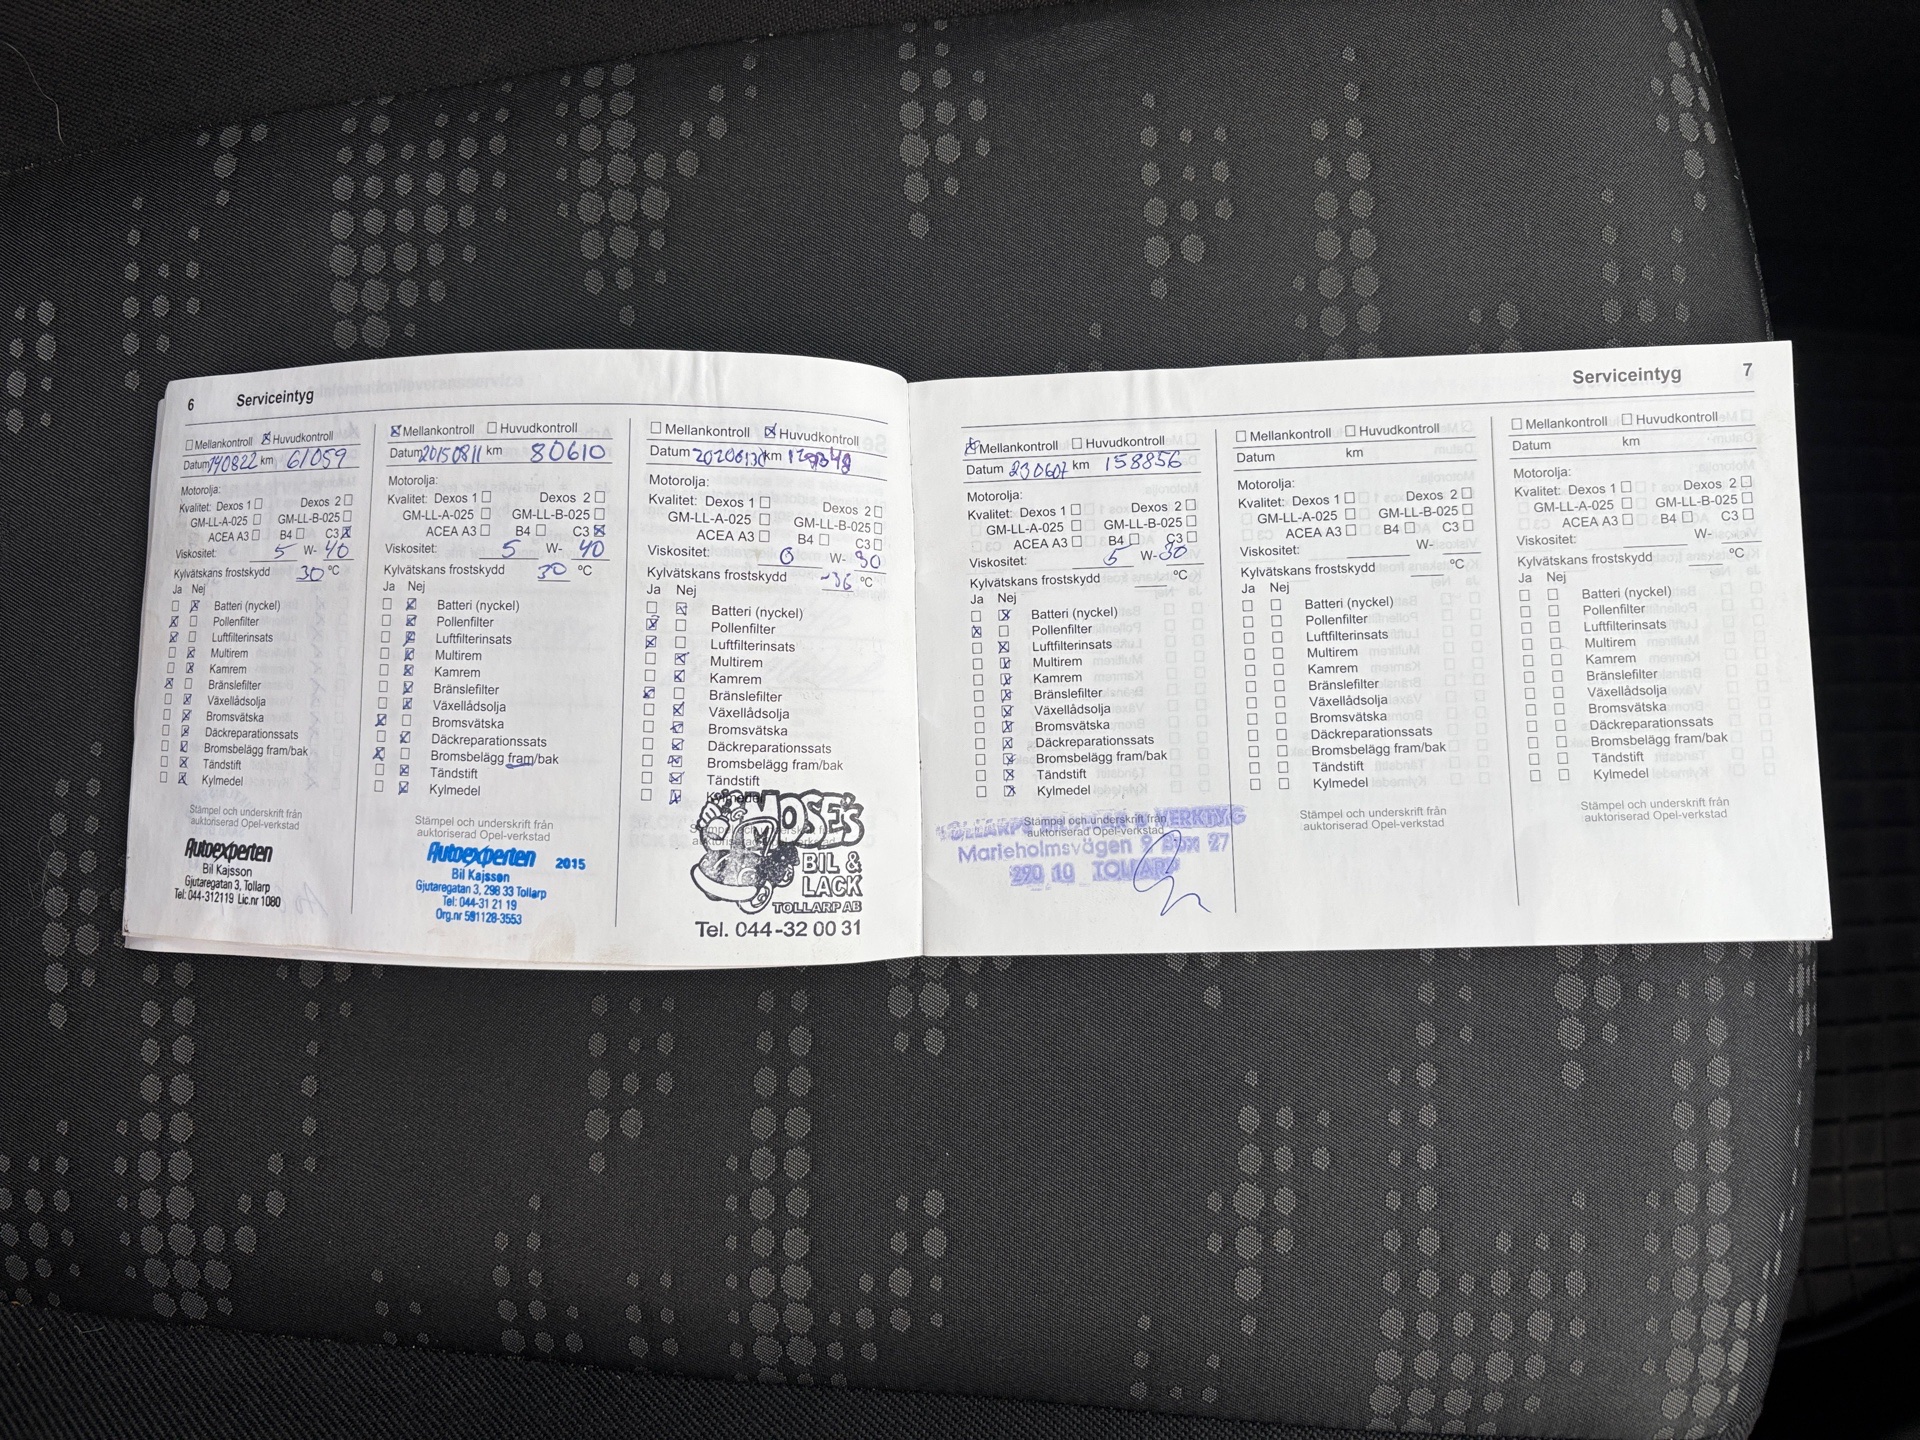 6 Serviceintyg
Mellankontroll Huvudkontroll
Datum 140822 km 61059
Motorolja:
Kvalitet: Dexos 1 Dexos 2
GM-LL-A-025 GM-LL-B-025
ACEA A3 B4 C3
Viskositet: 5 W- 40
Kylvätskans frostskydd 30 °C
Ja Nej
Batteri (nyckel)
Pollenfilter
Luftfilterinsats
Multirem
Kamrem
Bränslefilter
Växellådsolja
Bromsvätska
Däckreparationssats
Bromsbelägg fram/bak
Tändstift
Kylmedel
Stämpel och underskrift från
auktoriserad Opel-verkstad
Autoexperten
Bil Kajsson
Gjutaregatan 3, Tollarp
Tel: 044-312119 Lic.nr 1080
Mellankontroll Huvudkontroll
Datum 20150811 km 80610
Motorolja:
Kvalitet: Dexos 1 Dexos 2
GM-LL-A-025 GM-LL-B-025
ACEA A3 B4 C3
Viskositet: 5 W- 40
Kylvätskans frostskydd 30 °C
Ja Nej
Batteri (nyckel)
Pollenfilter
Luftfilterinsats
Multirem
Kamrem
Bränslefilter
Växellådsolja
Bromsvätska
Däckreparationssats
Bromsbelägg fram/bak
Tändstift
Kylmedel
Stämpel och underskrift från
auktoriserad Opel-verkstad
Autoexperten 2015
Bil Kajsson
Gjutaregatan 3, 298 33 Tollarp
Tel: 044-31 21 19
Org.nr 591128-3553
Mellankontroll Huvudkontroll
Datum km
Motorolja:
Kvalitet: Dexos 1 Dexos 2
GM-LL-A-025 GM-LL-B-025
ACEA A3 B4 C3
Viskositet: 0 W- 30
Kylvätskans frostskydd -36 °C
Ja Nej
Batteri (nyckel)
Pollenfilter
Luftfilterinsats
Multirem
Kamrem
Bränslefilter
Växellådsolja
Bromsvätska
Däckreparationssats
Bromsbelägg fram/bak
Tändstift
Kylmedel
MOSE'S
BIL &
LACK
TOLLARP AB
Tel. 044-32 00 31
Serviceintyg 7
Mellankontroll Huvudkontroll
Datum 230607 km 158856
Motorolja:
Kvalitet: Dexos 1 Dexos 2
GM-LL-A-025 GM-LL-B-025
ACEA A3 B4 C3
Viskositet: 5 W- 30
Kylvätskans frostskydd °C
Ja Nej
Batteri (nyckel)
Pollenfilter
Luftfilterinsats
Multirem
Kamrem
Bränslefilter
Växellådsolja
Bromsvätska
Däckreparationssats
Bromsbelägg fram/bak
Tändstift
Kylmedel
Stämpel och underskrift från
auktoriserad Opel-verkstad
Marieholmsvägen 9 Box 27
290 10 TOLLARP
Mellankontroll Huvudkontroll
Datum km
Motorolja:
Kvalitet: Dexos 1 Dexos 2
GM-LL-A-025 GM-LL-B-025
ACEA A3 B4 C3
Viskositet: W-
Kylvätskans frostskydd °C
Ja Nej
Batteri (nyckel)
Pollenfilter
Luftfilterinsats
Multirem
Kamrem
Bränslefilter
Växellådsolja
Bromsvätska
Däckreparationssats
Bromsbelägg fram/bak
Tändstift
Kylmedel
Stämpel och underskrift från
auktoriserad Opel-verkstad
Mellankontroll Huvudkontroll
Datum km
Motorolja:
Kvalitet: Dexos 1 Dexos 2
GM-LL-A-025 GM-LL-B-025
ACEA A3 B4 C3
Viskositet: W-
Kylvätskans frostskydd °C
Ja Nej
Batteri (nyckel)
Pollenfilter
Luftfilterinsats
Multirem
Kamrem
Bränslefilter
Växellådsolja
Bromsvätska
Däckreparationssats
Bromsbelägg fram/bak
Tändstift
Kylmedel
Stämpel och underskrift från
auktoriserad Opel-verkstad